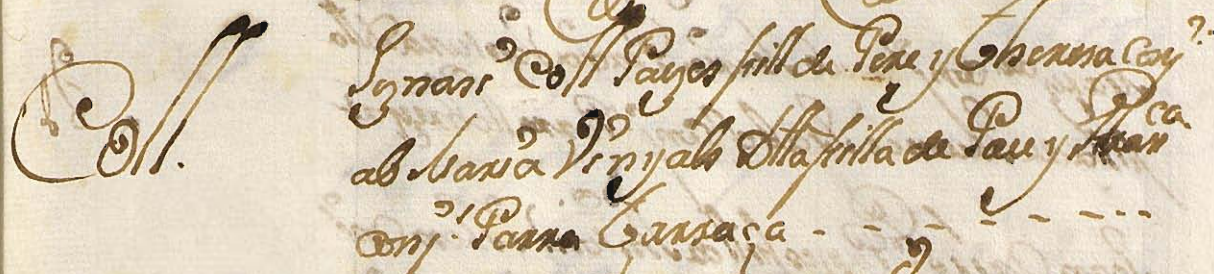 Coll.
Ignasi Coll Pages fill de Pere y Theresa Conj.
ab Maria Vinyals Dlla filla de Pau y Franca
conj. Parra Tarraça